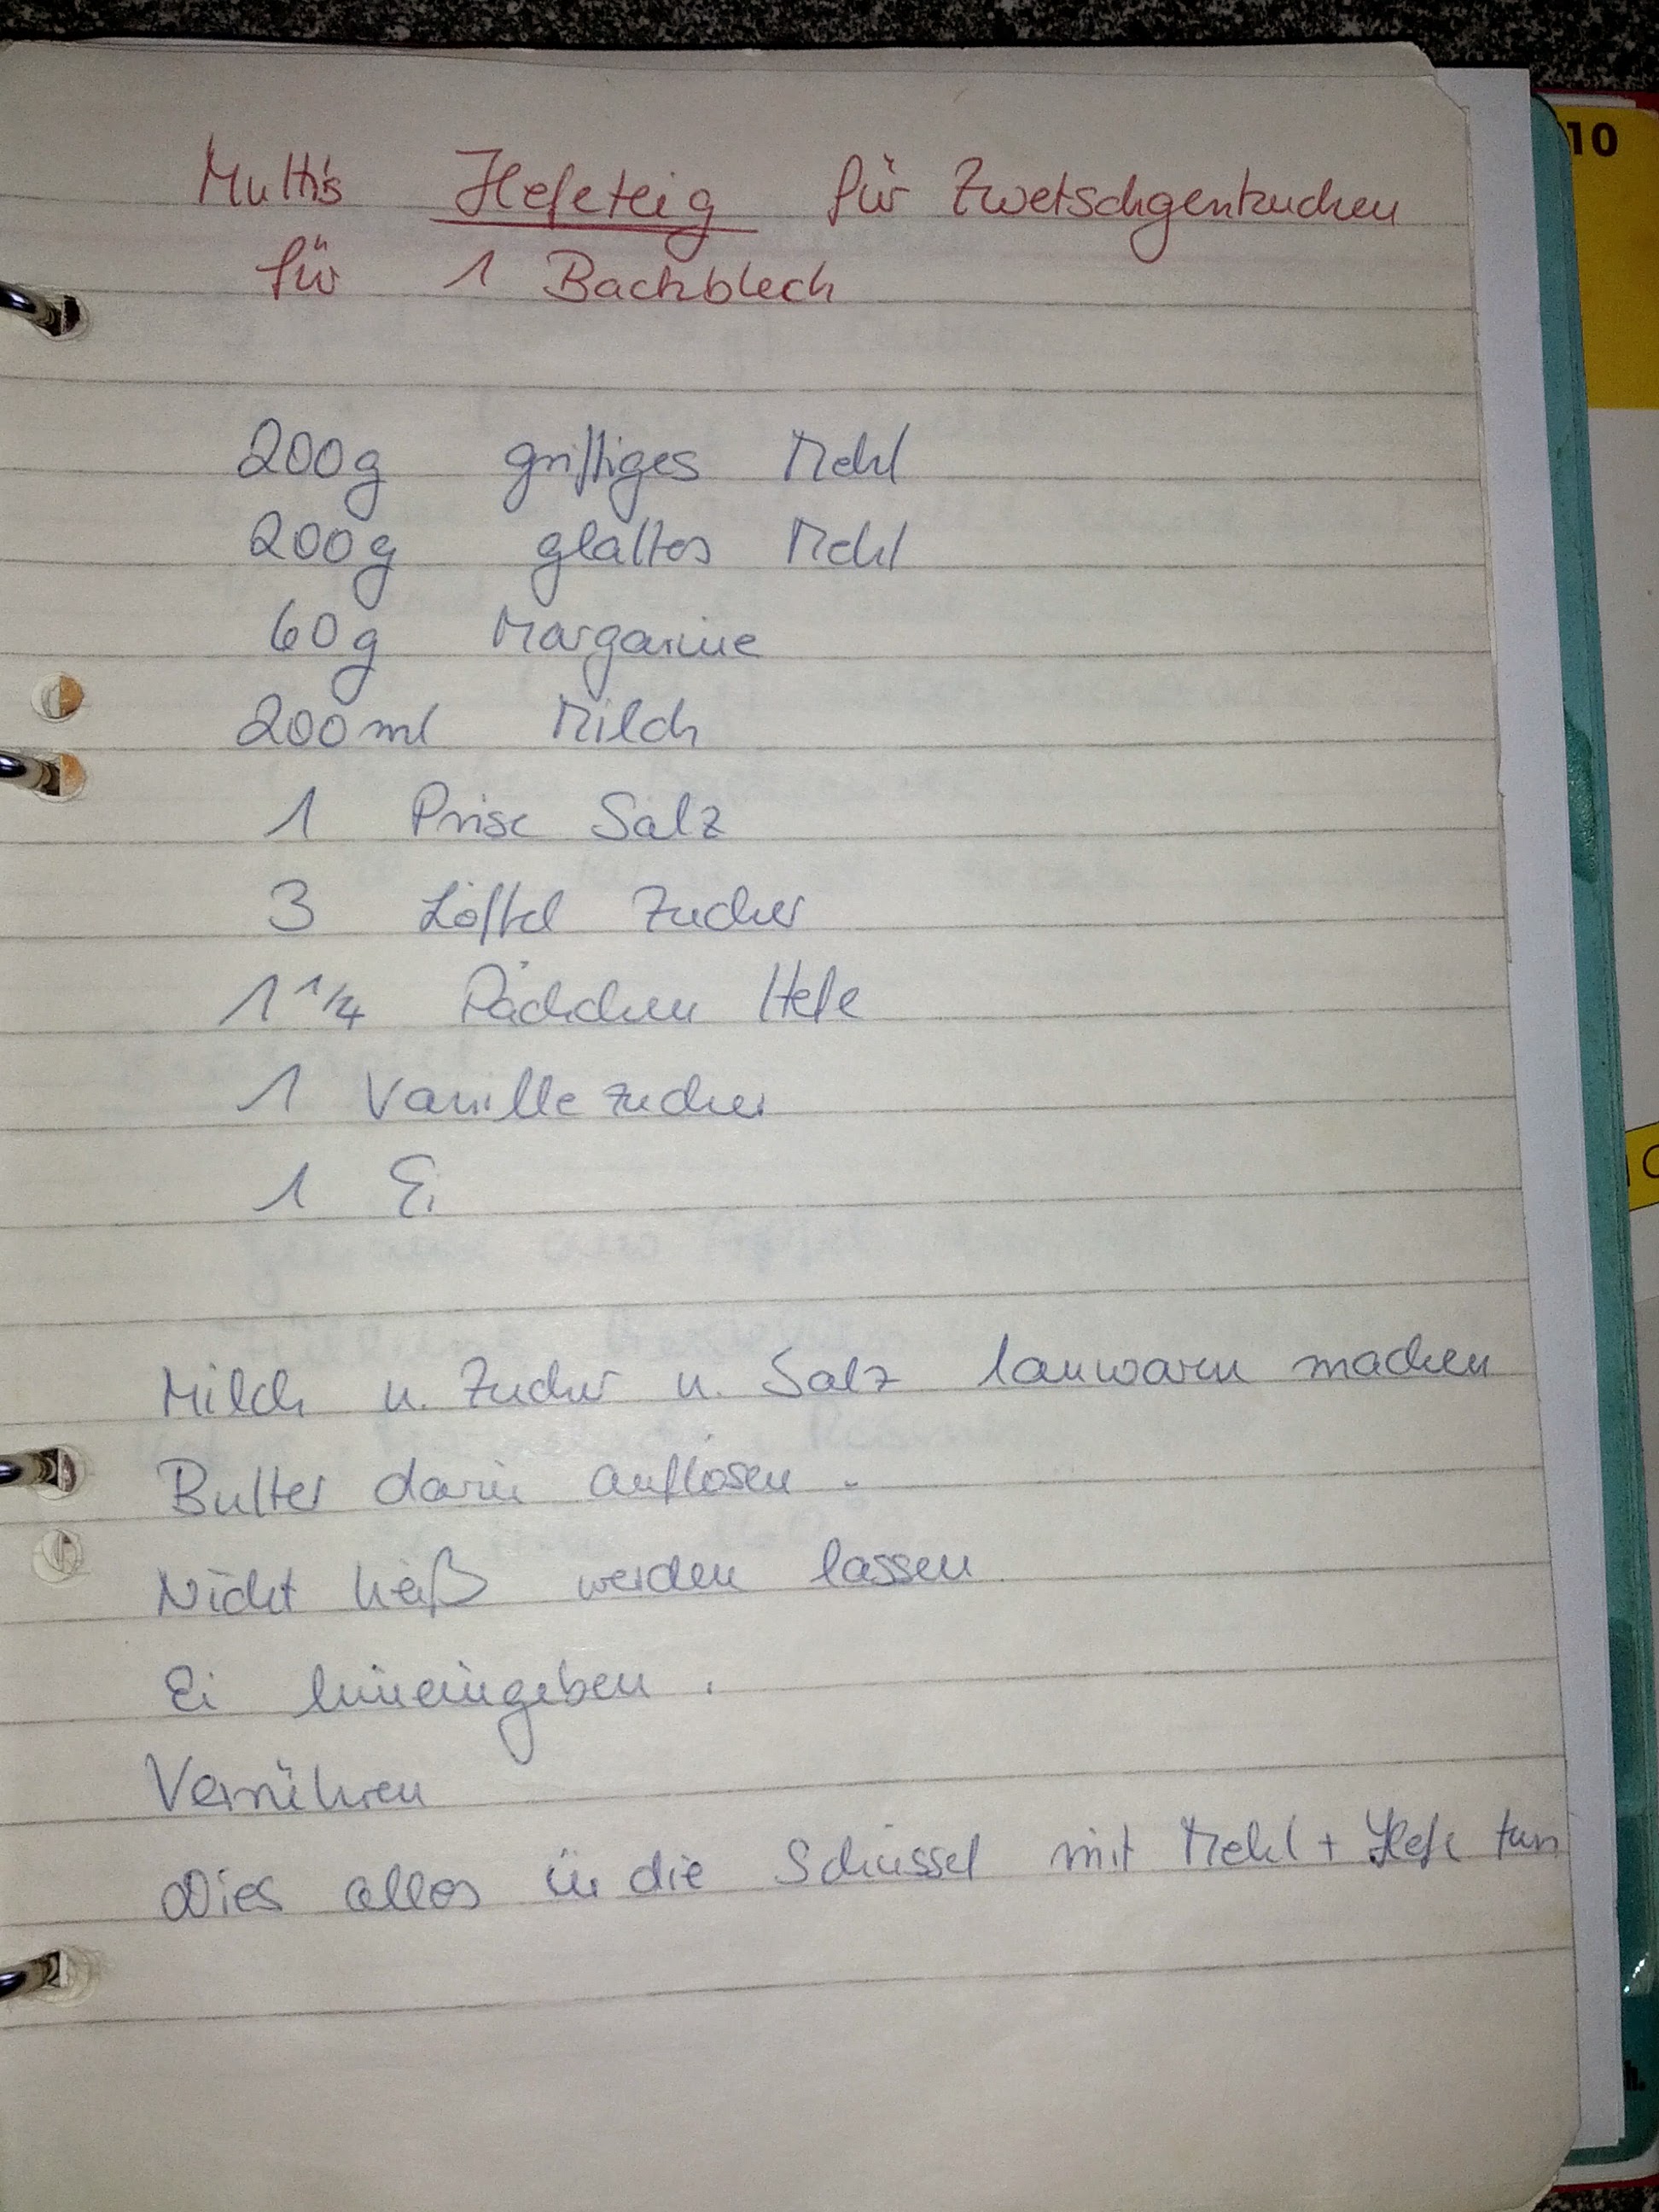 Mutti's Hefeteig für Zwetschgenkuchen
für 1 Backblech
200g griffiges Mehl
200g glattes Mehl
60g Margarine
200ml Milch
1 Prise Salz
3 Löffel Zucker
1 1/4 Päckchen Hefe
1 Vanillezucker
1 Ei
Milch u. Zucker u. Salz lauwarm machen
Butter darin auflösen.
Nicht heiß werden lassen
Ei hineingeben.
Verrühren
Dies alles in die Schüssel mit Mehl + Hefe tun
10